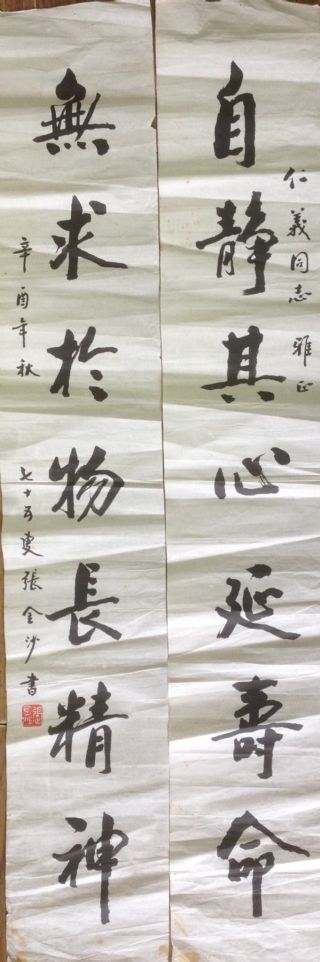 仁義同志 雅正
自静其心延壽命
無求於物長精神
辛酉年秋 七十五叟張金沙書